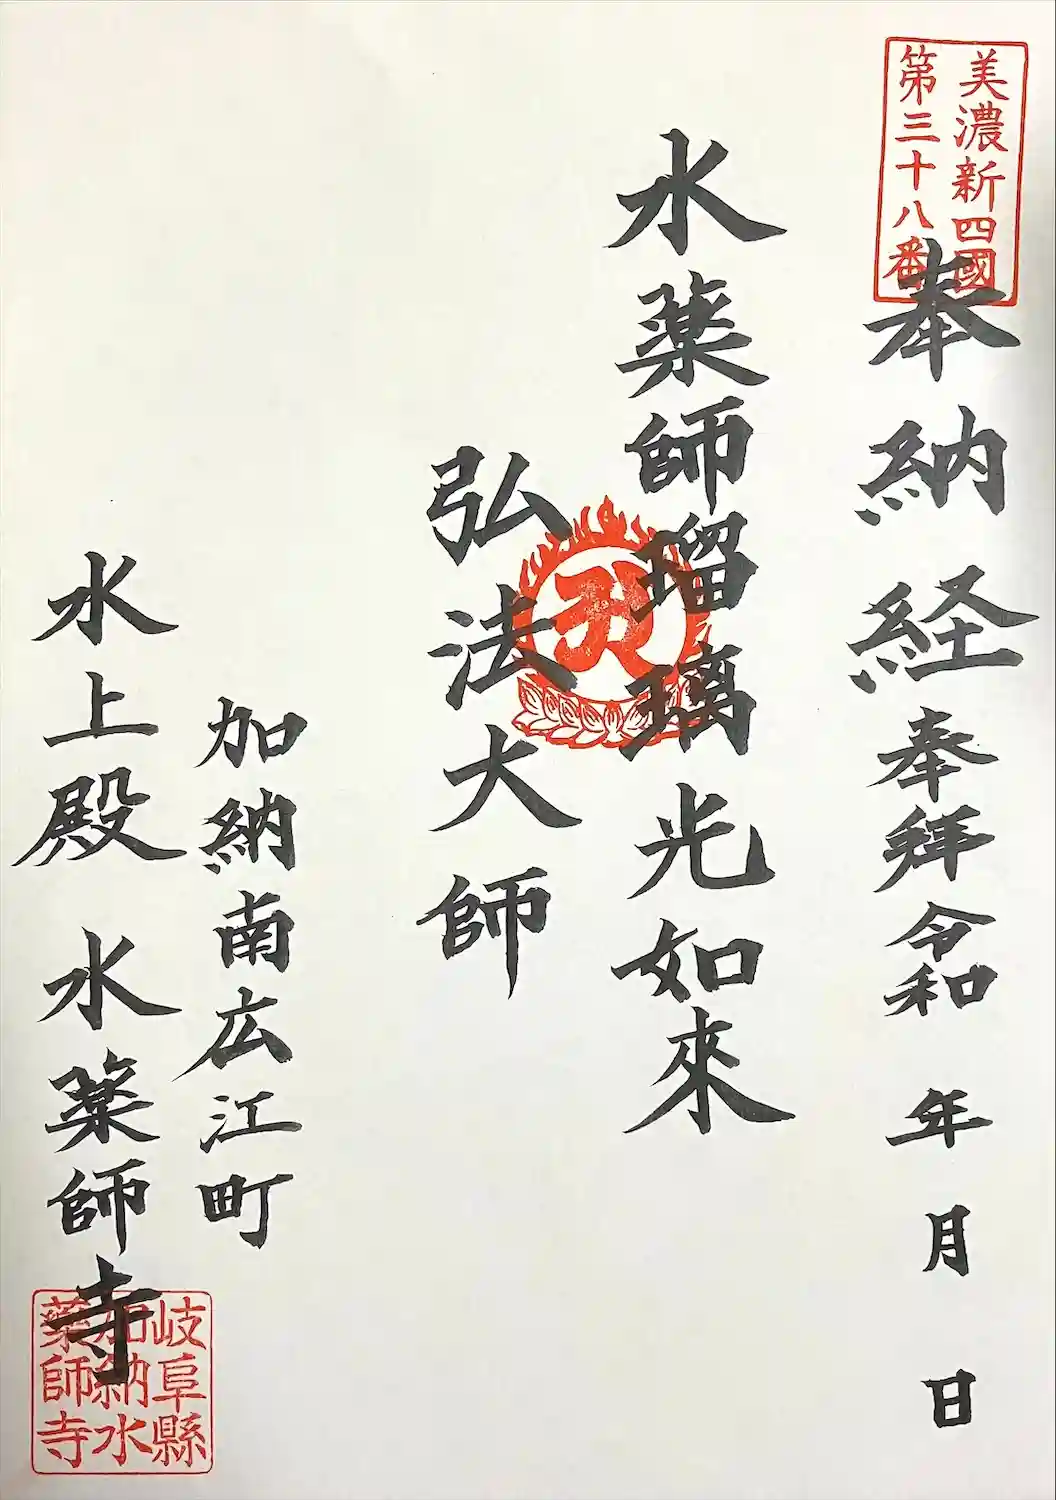 美濃新四國
第三十八番
奉納経奉拜令和 年 月 日
水薬師瑠璃光如來
弘法大師
加納南広江町
水上殿 水薬師寺
岐阜縣
加納水
藥師寺